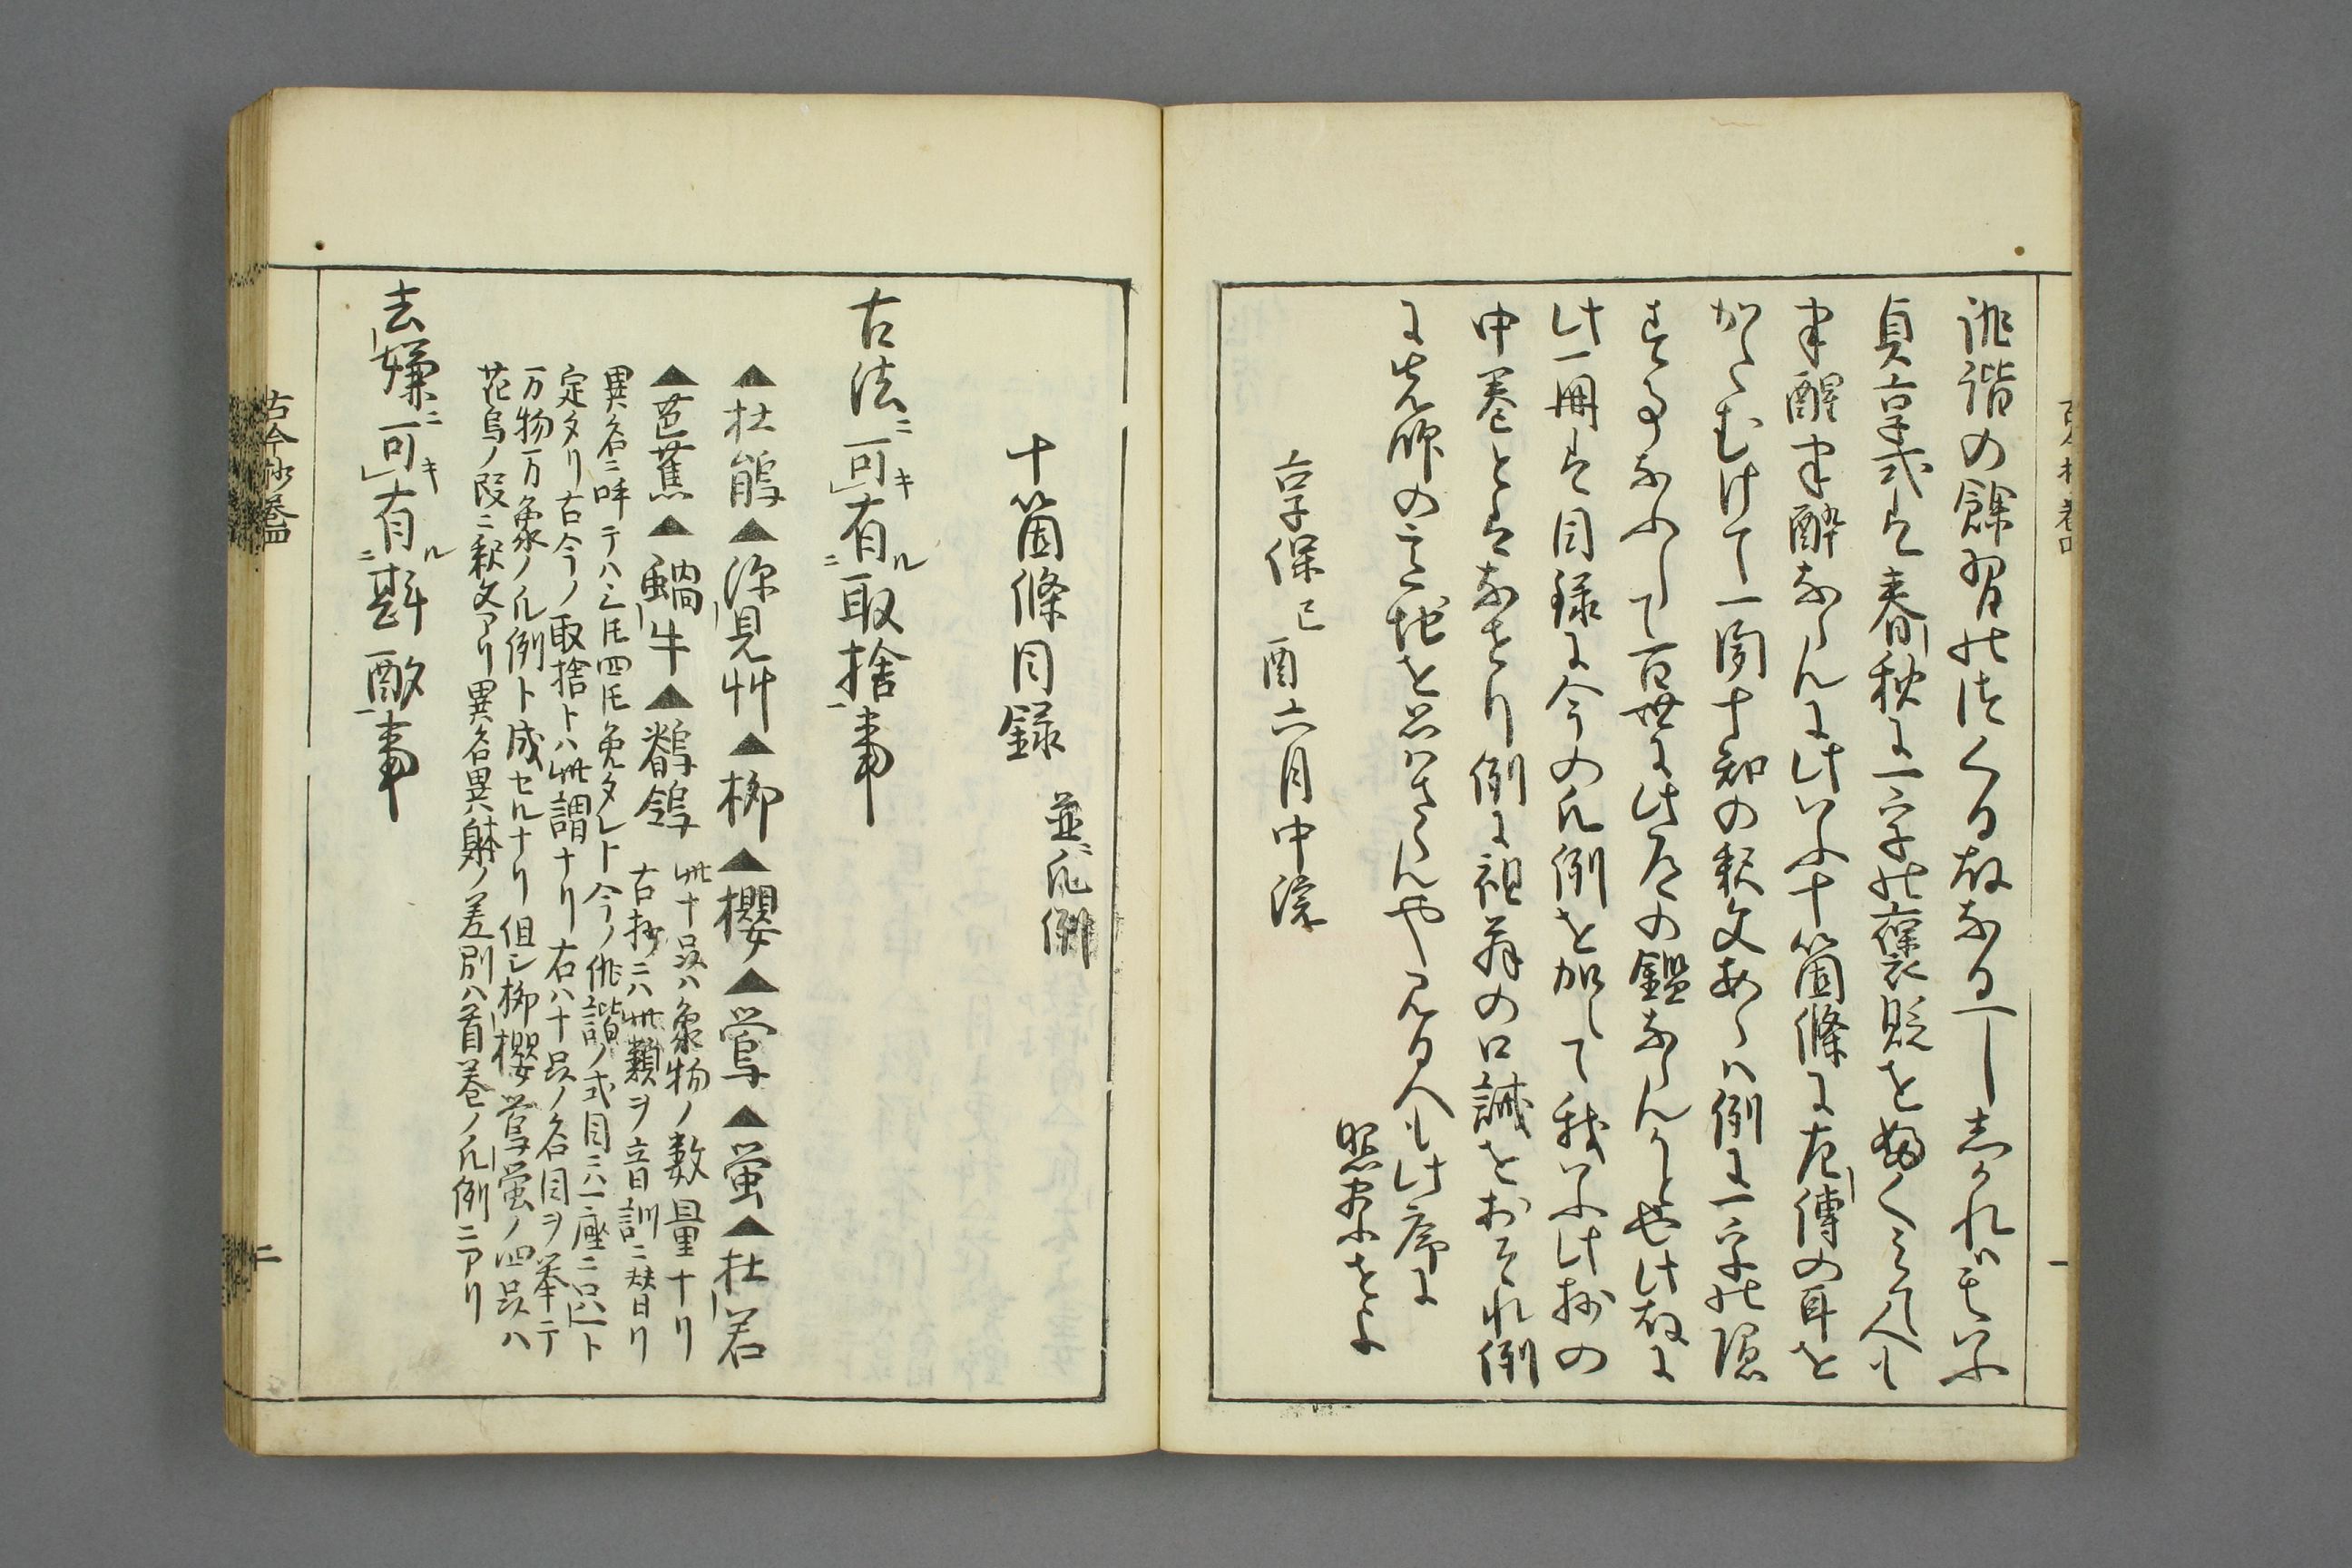 俳諧の餘習の法くる故なるへし志かれは其いふ
貞享式は春秋に一字の褒貶をふくみて人も
半醒半酔ならんに此いふ十箇條に左傳の耳を
かたむけて一聞十知の釈文あらは例に一字の隠
て百世に此道の鑑ならんかとや此故に
此一冊は目録に今の凡例を加して我いふ此抄の
中巻とはなせり例に祖翁の口誡をおそれ例
に先師の意地をおもはさらんや見る人も此序に
照察せよ
享保己酉六月中浣
十箇條目録 並凡例
古法ニ可キ有ル取捨事
▲杜鵑▲深見艸▲柳▲櫻▲鶯▲螢▲杜若
▲芭蕉▲蝸牛▲鶺鴒 此十品ハ象物ノ数量ナリ
古抄ニハ此類ヲ音訓ニ替リ
異名ニ呼テハ三モ四モ免タレト今ノ俳諧ノ式目ニハ一座ニ只一ト
定タリ古今ノ取捨トハ此謂ナリ右ハ十品ノ名目ヲ挙テ
万物万象ノ凡例ト成セルナリ但シ柳櫻鶯螢ノ四品ハ
花鳥ノ段ニ釈文アリ異名異躰ノ差別ハ首巻ノ凡例ニアリ
去嫌ニ可キ有ル斟酌事
古今抄巻四
二